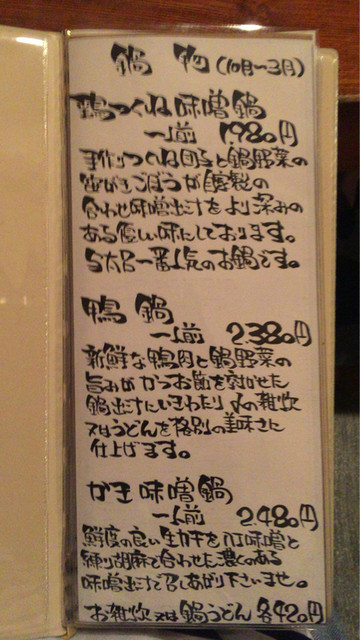 鍋 物 (10月〜3月)
鴨つくね味噌鍋
一人前 1.980円
手作りつくね団子と鍋野菜の
笹がきごぼうが自家製の
合わせ味噌出汁をより深みの
ある優しい味にしております。
一番人気のお鍋です。
鴨 鍋
一人前 2.380円
新鮮な鴨肉と鍋野菜の
旨みがかつお節を効かせた
鍋出汁にいきわたり 〆の雑炊
又はうどんを格別の美味さに
仕上げます。
かき味噌鍋
一人前 2.480円
鮮度の良い生かきを 味噌と
練り胡麻で合わせた濃くのある
味噌出汁で召しあがり下さいませ。
お雑炊 又は 鍋うどん 各420円